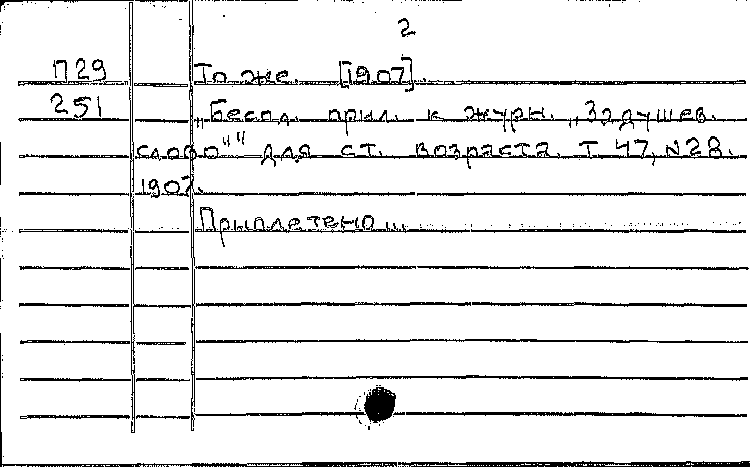 2
П29 То же. [1907].
251 „Беспл. прил. к журн. „Задушев.
слово"" для ст. возраста. Т 47, N28.
1907.
Приплетено...